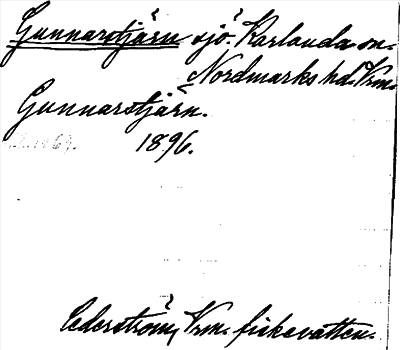 Gunnarstjärn sjö. Karlanda sn.
Nordmarks hd. Vrm.
Gunnarstjärn.
1896.
Cederström, Vrm. fiskevatten.